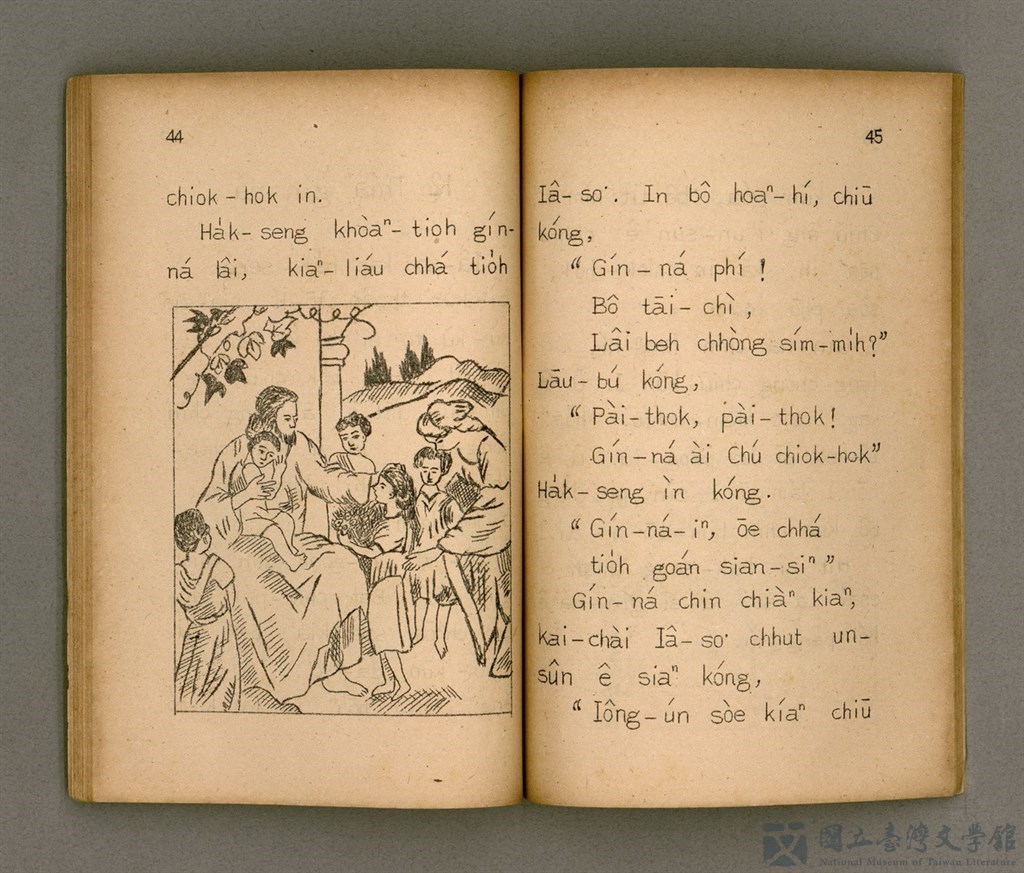 44
chiok-hok in.
Ha̍k-seng khòaⁿ-tio̍h gín-
ná lâi, kiaⁿ-liáu chhá tio̍h
45
Iâ-so͘. In bô hoaⁿ-hí, chiū
kóng,
“ Gín-ná phí !
Bô tāi-chì ,
Lâi beh chhòng sím-mi̍h?”
Lāu-bú kóng,
“ Pài-thok, pài-thok!
Gín-ná ài Chú chiok-hok”
Ha̍k-seng ìn kóng.
“ Gín-ná-iⁿ, ōe chhá
tio̍h goán sian-siⁿ ”
Gín-ná chin chiàⁿ kiaⁿ,
kai-chài Iâ-so͘ chhut un-
sûn ê siaⁿ kóng,
“ Iông-ún sòe kíaⁿ chiū
國立臺灣文學館
National Museum of Taiwan Literature